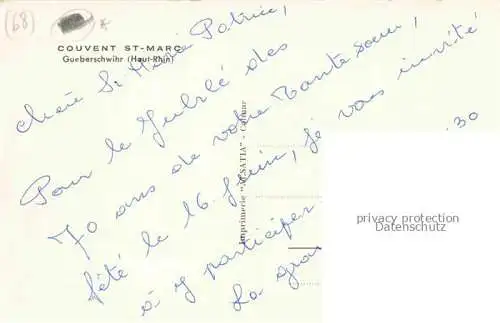 (68)
COUVENT ST-MARC
Gueberschwihr (Haut-Rhin)
chère Sr Marie Patrice,
Pour le Jubilé des
70 ans de votre Tante soeur,
fêté le 16 Juin, je vous invite
à y participer
30
La gran
Imprimerie "ALSATIA" - Colmar
privacy protection
Datenschutz